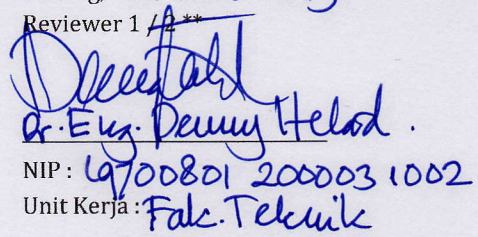 Reviewer 1 / 2 **
Dr. Eng. Denny Helard.
NIP : 19700801 200003 1002
Unit Kerja : Fak. Teknik